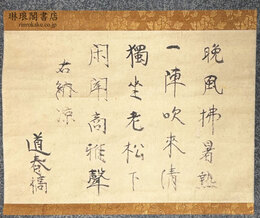 琳琅閣書店
rinrokaku.co.jp
晩風拂暑熱
一陣吹来清
獨坐老松下
閑聞高雅聲
右納涼
道春稿